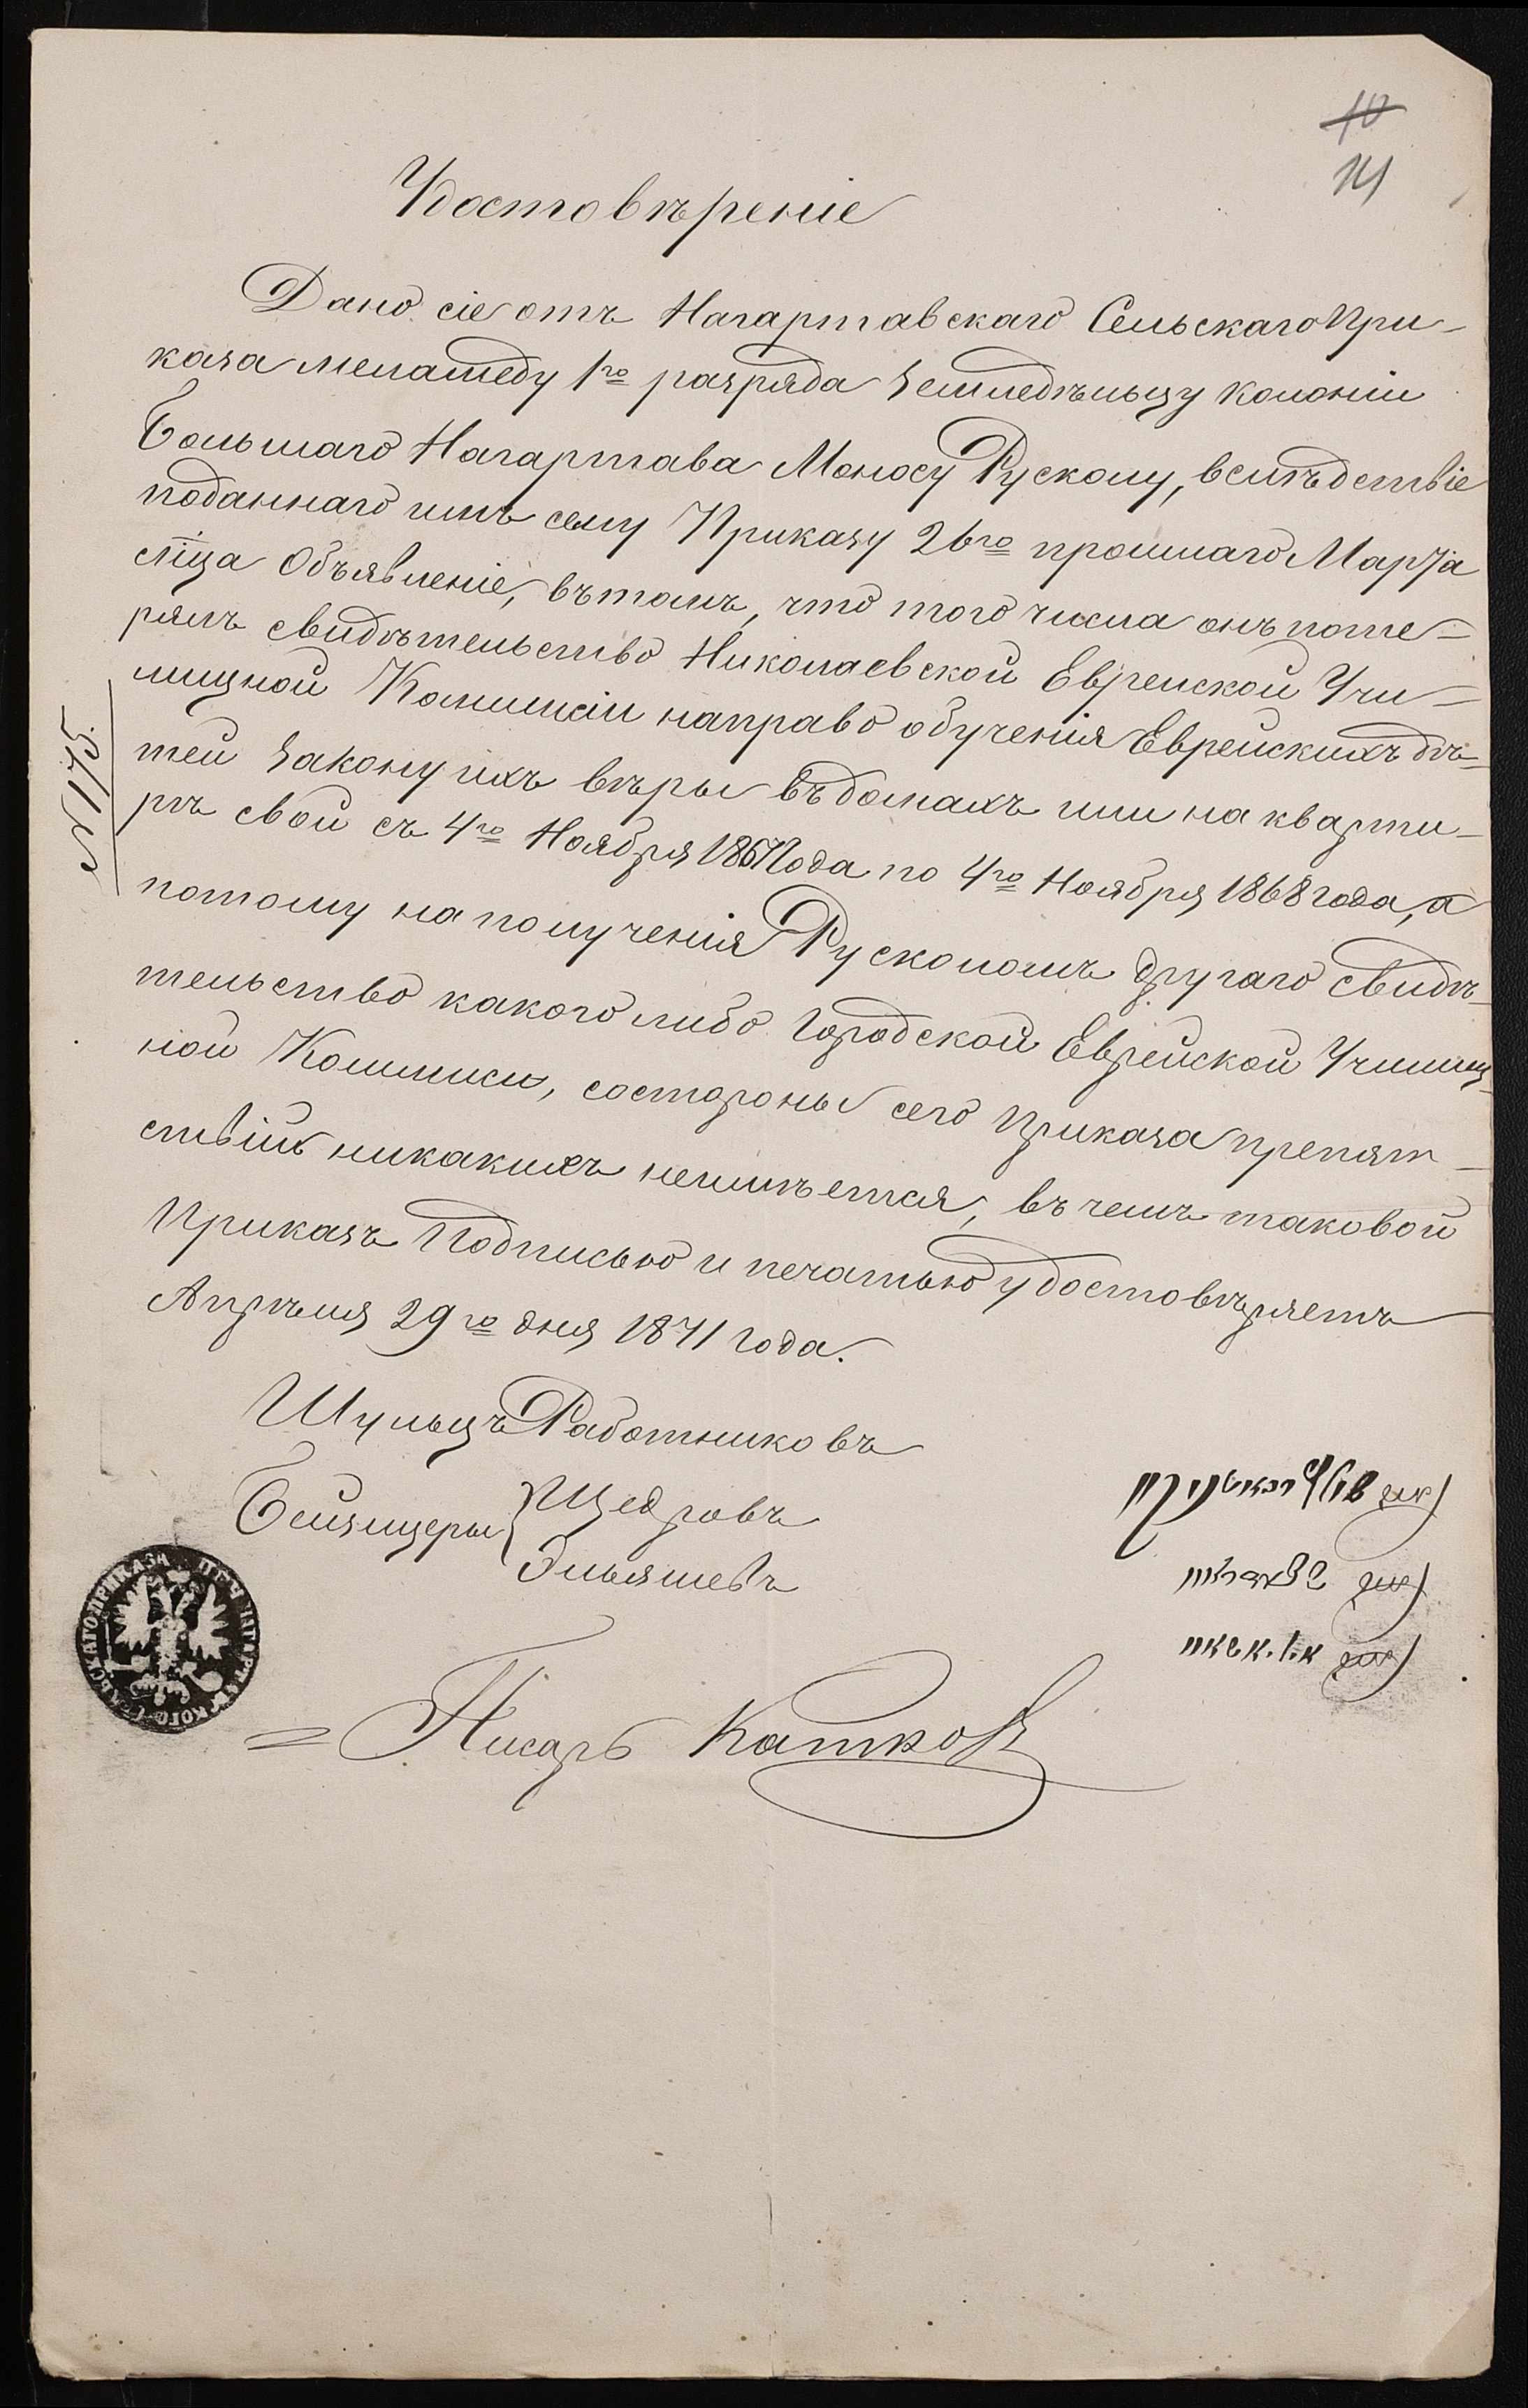 10
14
Удостовѣреніе
Дано сіе отъ Нагартавскаго Сельскаго При-
каза меламеду 1го разряда Земледѣльцу колоніи
Большаго Нагартава Моносу Рускому, вслѣдствіе
поданнаго имъ сему Приказу 26го прошлаго Марта
мѣсяца Объявленіе, въ томъ, что того числа онъ поте-
рялъ свидѣтельство Николаевской Еврейской Учи-
лищной Комиссіи на право обученія Еврейскихъ дѣ-
тей Закону ихъ вѣры въ домахъ или на кварти-
рѣ свой съ 4го Ноября 1867 года по 4го Ноября 1868 года, а
потому на полученія Рускономъ другаго свидѣ-
тельство какого либо Городской Еврейской Училищ-
ной Комиссіи, состороны сего Приказа препят-
ствій никакихъ неимѣется, въ чемъ таковой
Приказъ Подписью и печатью удостовѣряетъ
Апрѣля 29го дня 1871 года.
№ 175.
Шульцъ Работниковъ
Бейзицеры Щедровъ
Эльяшевъ
Писарь Катков